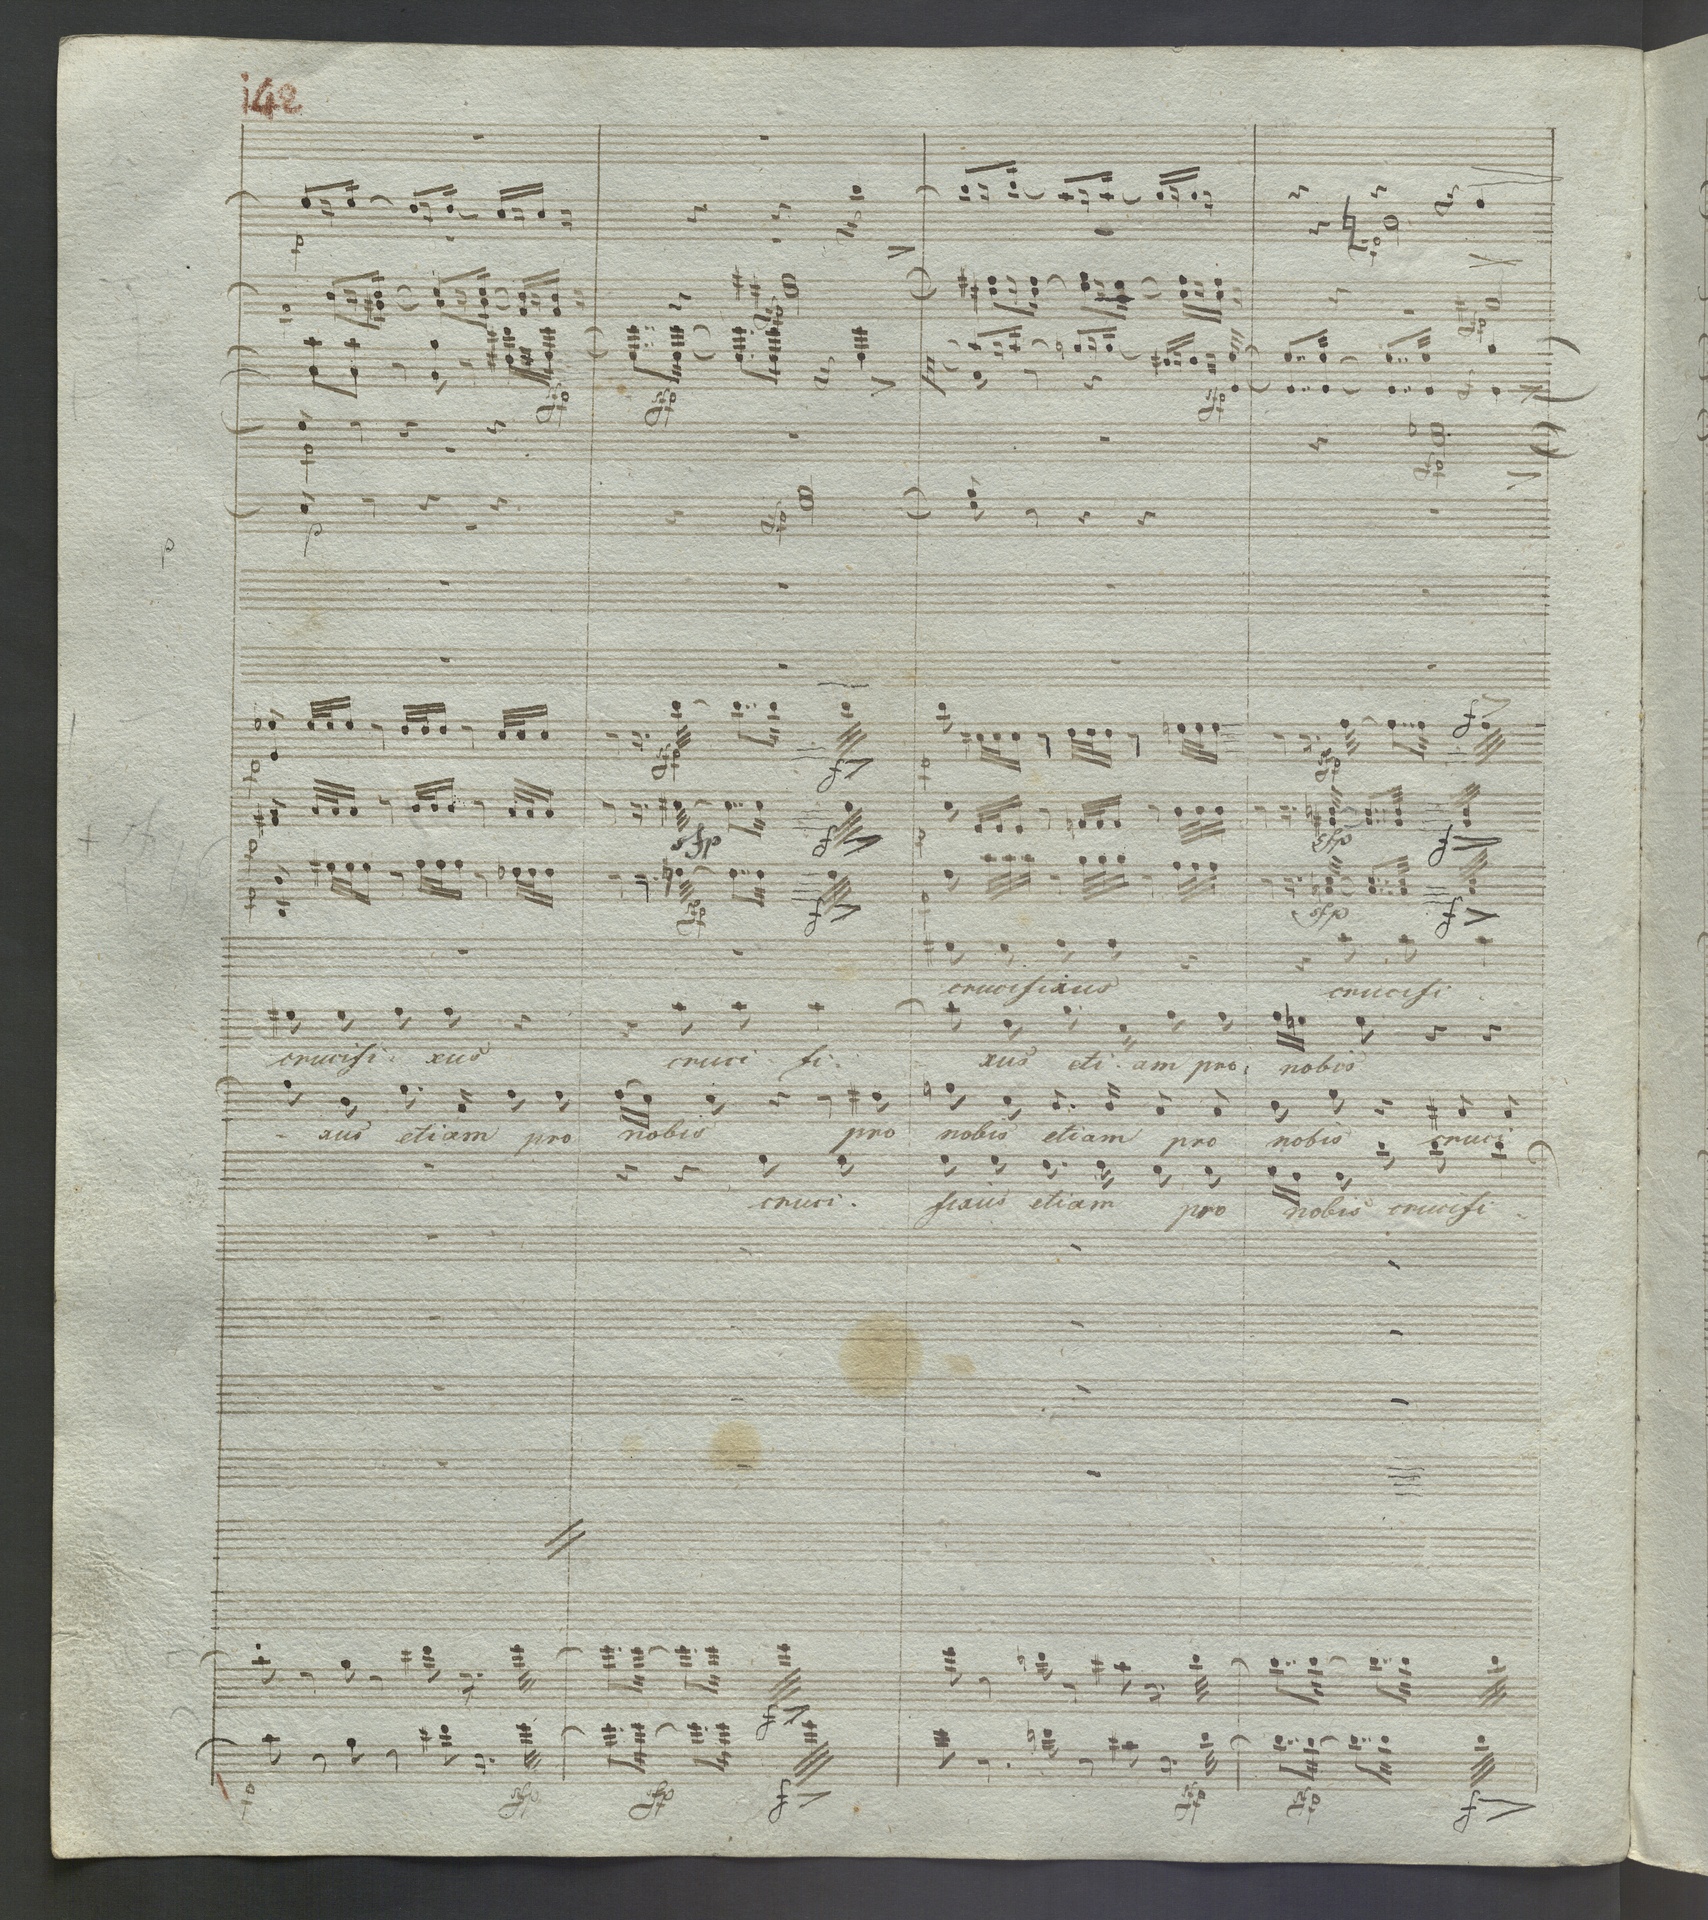 142
p
p
sfp
sfp
sfp
sfp
sfp
sfp
p
sfp
p
sfp
p
p
sfp
f
p
sfp
f
p
sfp
f
p
sfp
f
p
sfp
f
p
sfp
f
crucifixus crucifi
crucifi. xus cruci fi. xus eti. am pro nobis
- xus etiam pro nobis pro nobis etiam pro nobis cruci
cruci. fixus etiam pro nobis crucifi
f
p sfp sfp f sfp sfp f